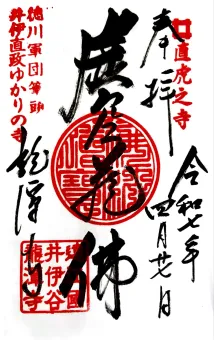 直虎之寺
奉拝
令和七年
四月廿七日
虚空蔵佛
徳川軍団筆頭
井伊直政ゆかりの寺
龍潭寺
遠國
井伊谷
龍潭寺